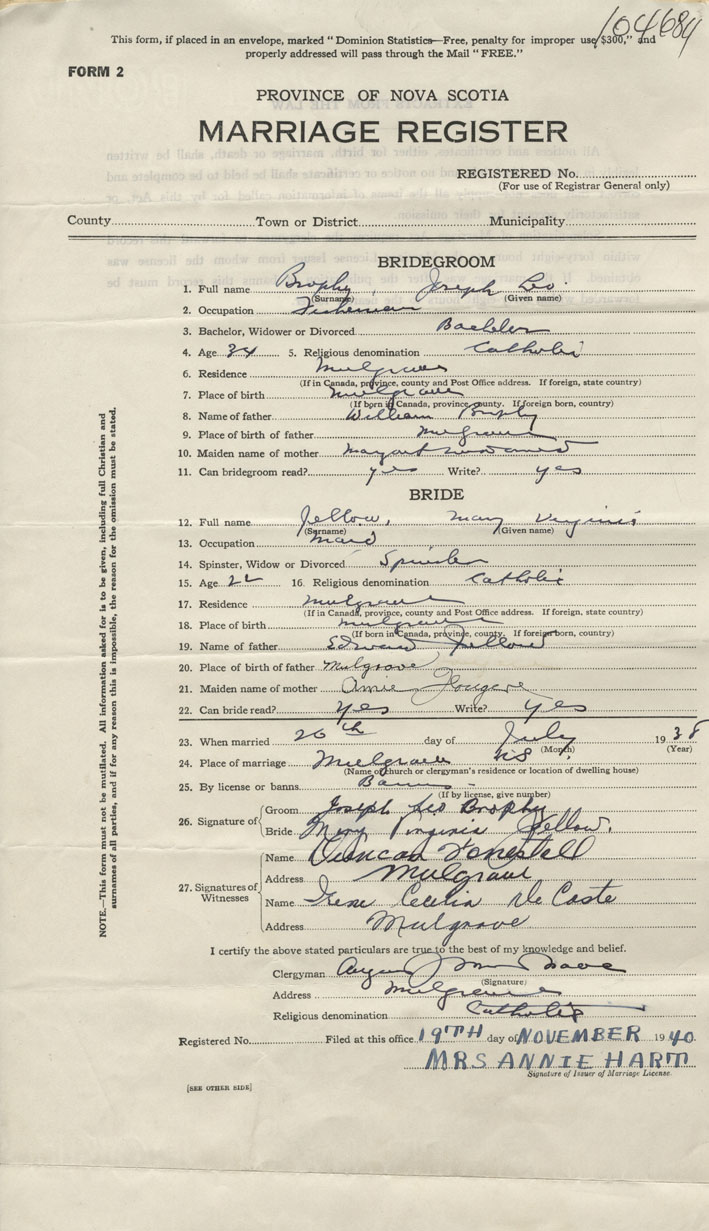 104684
This form, if placed in an envelope, marked "Dominion Statistics—Free, penalty for improper use $300," and
properly addressed will pass through the Mail "FREE."
FORM 2
PROVINCE OF NOVA SCOTIA
MARRIAGE REGISTER
REGISTERED No.
(For use of Registrar General only)
County Town or District Municipality
BRIDEGROOM
1. Full name Brophy Joseph Leo
(Surname) (Given name)
2. Occupation Fisherman
3. Bachelor, Widower or Divorced Bachelor
4. Age 34 5. Religious denomination Catholic
6. Residence Mulgrave
(If in Canada, province, county and Post Office address. If foreign, state country)
7. Place of birth Mulgrave
(If born in Canada, province, county. If foreign born, country)
8. Name of father William Brophy
9. Place of birth of father Mulgrave
10. Maiden name of mother
11. Can bridegroom read? yes Write? yes
BRIDE
12. Full name Jellow, Mary Virginia
(Surname) (Given name)
13. Occupation Maid
14. Spinster, Widow or Divorced Spinster
15. Age 22 16. Religious denomination Catholic
17. Residence Mulgrave
(If in Canada, province, county and Post Office address. If foreign, state country)
18. Place of birth Mulgrave
(If born in Canada, province, county. If foreign born, country)
19. Name of father Edward Jellow
20. Place of birth of father Mulgrave
21. Maiden name of mother Amie Fougere
22. Can bride read? Yes Write? Yes
23. When married 26th day of July 1938
(Month) (Year)
24. Place of marriage Mulgrave N.S.
(Name of church or clergyman's residence or location of dwelling house)
25. By license or banns Banns
(If by license, give number)
26. Signature of Groom Joseph Leo Brophy
Bride Mary Virginia Jellow.
27. Signatures of Witnesses
Name Duncan
Address Mulgrave
Name Irene Cecilia De Coste
Address Mulgrave
I certify the above stated particulars are true to the best of my knowledge and belief.
Clergyman
(Signature)
Address Mulgrave
Religious denomination Catholic
Registered No. Filed at this office 19TH day of NOVEMBER 1940
MRS ANNIE HART
Signature of Issuer of Marriage License.
[SEE OTHER SIDE]
NOTE.—This form must not be mutilated. All information asked for is to be given, including full Christian and
surnames of all parties, and if for any reason this is impossible, the reason for the omission must be stated.